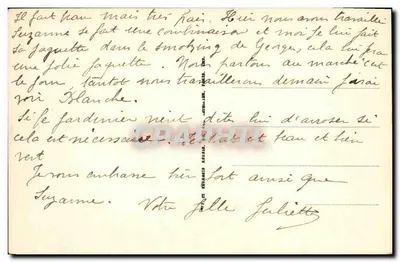 Il fait beau mais très frais. Hier nous avons travaillé
Suzanne se fait une combinaison et moi je lui fait
sa jaquette dans le smoking de Georges, cela lui fera
une jolie jaquette. Nous partons au marché c'est
le jour, tantôt nous travaillerons demain j'irai
voir Blanche.
Si le jardinier vient dites lui d'arroser si
cela est nécessaire. et beau et bien
vert
Je vous embrasse bien fort ainsi que
Suzanne. Votre fille Juliette